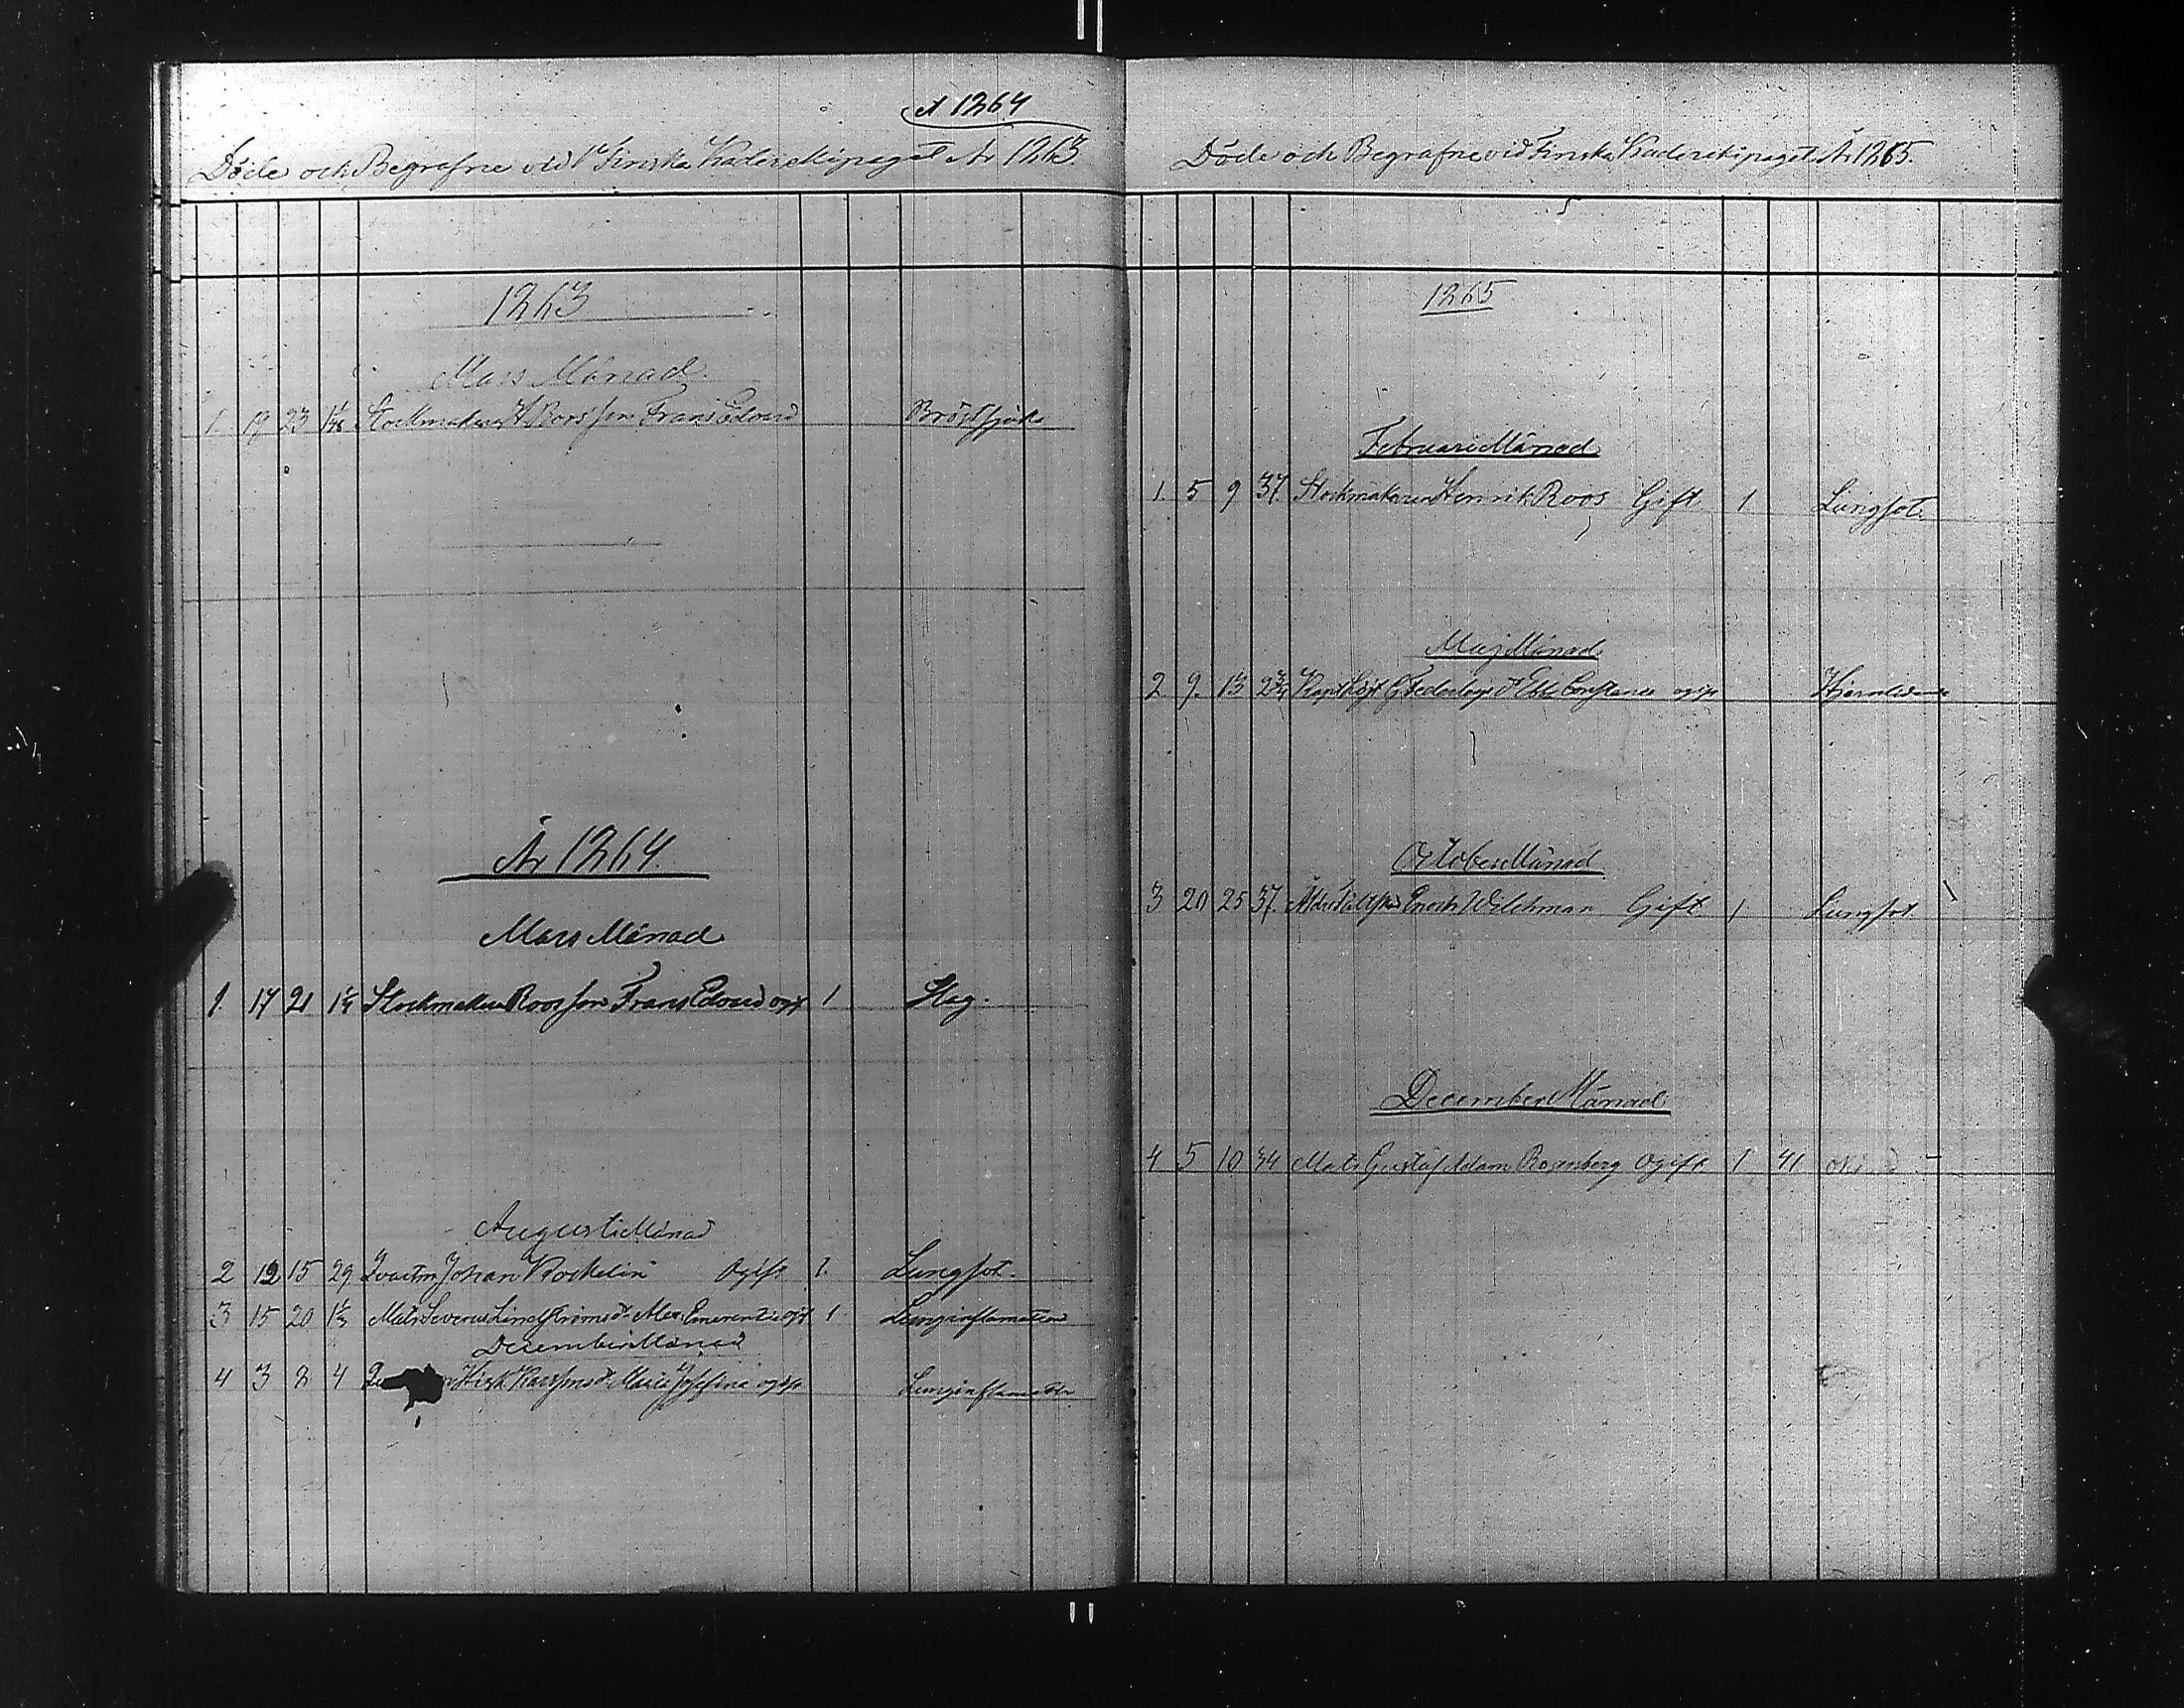 A 1864
Döde och Begrafne vid Finska Kadettskipaget År 1863
1863
Mars Månad.
1. 19 23 Stockmakar H Roos son Frans Edvard Bröstsjuka
År 1864.
Mars Månad
1. 17 21 Stockmakar Roos son Frans Edvard ogift 1 Slag.
Augusti Månad
2 12 15 29 Johan Ogift 1. Lungsot.
3 15 20 Mats Severus Lindströms d. Alex. Emerentia ogift 1 Lunginflamation
December Månad
4 3 8 4 d. Maria Josefina ogift Lunginflamation
Döde och Begrafne vid Finska Kadettskipaget År 1865.
1865
Februari Månad
1. 5 9 37. Stockmakaren Henrik Roos Gift 1 Lungsot.
Maj Månad
2 9. 13 2 3/4 Constance ogift
October Månad
3 20 25 37. Enoch Gift 1 Lungsot
December Månad
4 5 10 34 Mats Gustaf Adam Rosenberg Ogift 1 41